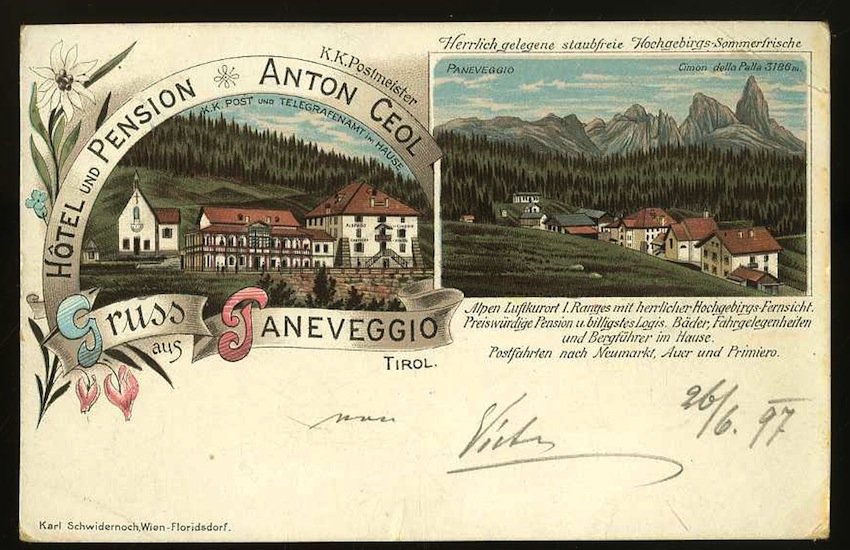 Herrlich gelegene staubfreie Hochgebirgs-Sommerfrische
K.K. Postmeister
HÔTEL UND PENSION ANTON CEOL
K.K. POST UND TELEGRAFENAMT IM HAUSE
PANEVEGGIO
Cimon della Palla 3186 m.
Gruss
aus
PANEVEGGIO
TIROL.
Alpen Luftkurort I. Ranges mit herrlicher Hochgebirgs-Fernsicht.
Preiswürdige Pension u. billigstes Logis. Bäder, Fahrgelegenheiten
und Bergführer im Hause.
Postfahrten nach Neumarkt, Auer und Primiero.
von
26/6. 97
Karl Schwidernoch, Wien-Floridsdorf.